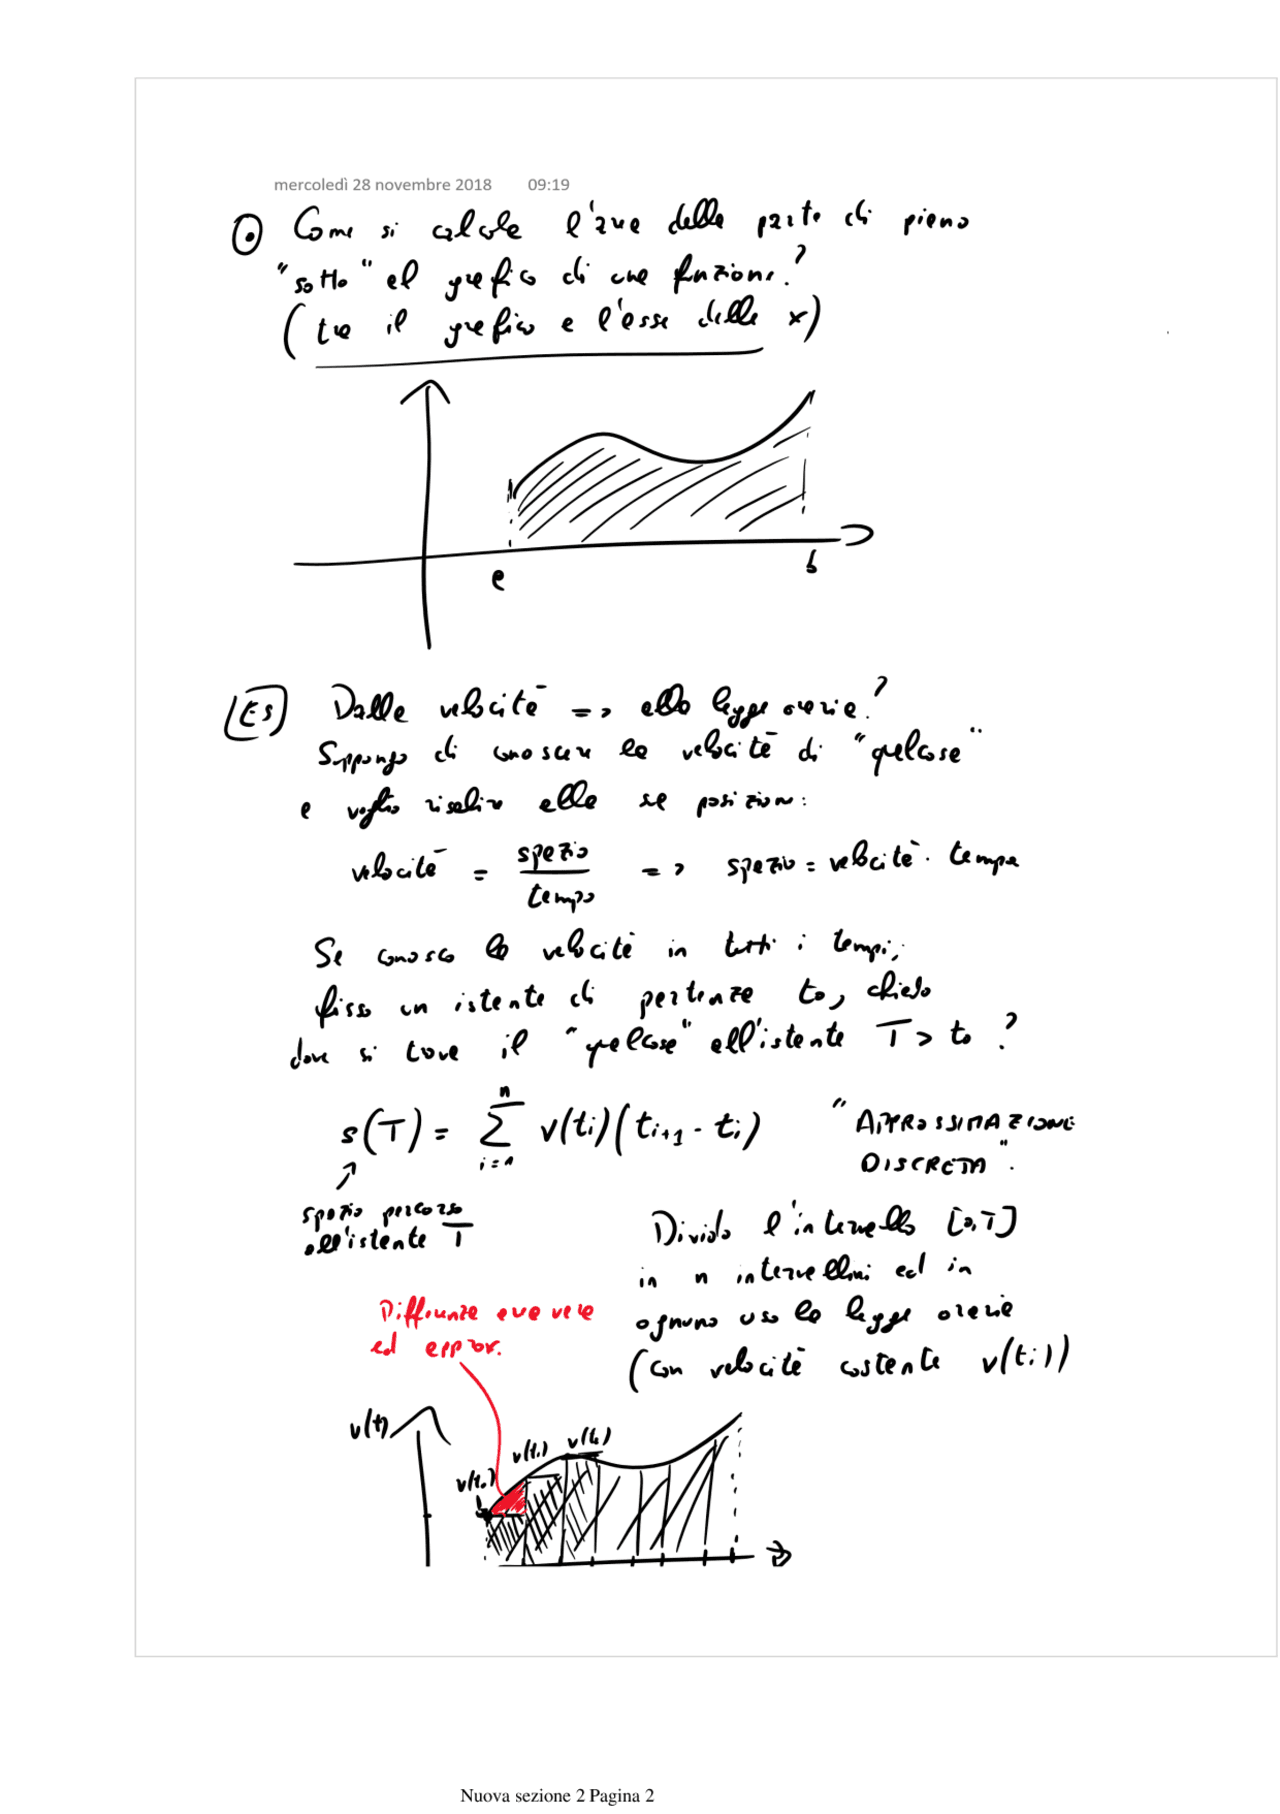 mercoledì 28 novembre 2018 09:19
Come si calcola l'area della parte di piano
"sotto" al grafico di una funzione?
(tra il grafico e l'asse delle x)
a b
Es Dalla velocità => alla legge oraria?
Suppongo di conoscere la velocità di "qualcosa"
e voglio risalire alla sua posizione:
velocità = spazio / tempo => spazio = velocità · tempo
Se conosco la velocità in tutti i tempi,
fisso un istante di partenza t0, chiedo
dove si trova il "qualcosa" all'istante T > t0 ?
s(T) = ∑ i=1 n v(ti)(ti+1 - ti) "APPROSSIMAZIONE
DISCRETA".
spazio percorso
all'istante T
Divido l'intervallo [0,T]
in n intervallini ed in
ognuno uso la legge oraria
(con velocità costante v(ti))
Differenza area vera
ed approx.
v(t)
v(t0) v(t1) v(t2)
Nuova sezione 2 Pagina 2